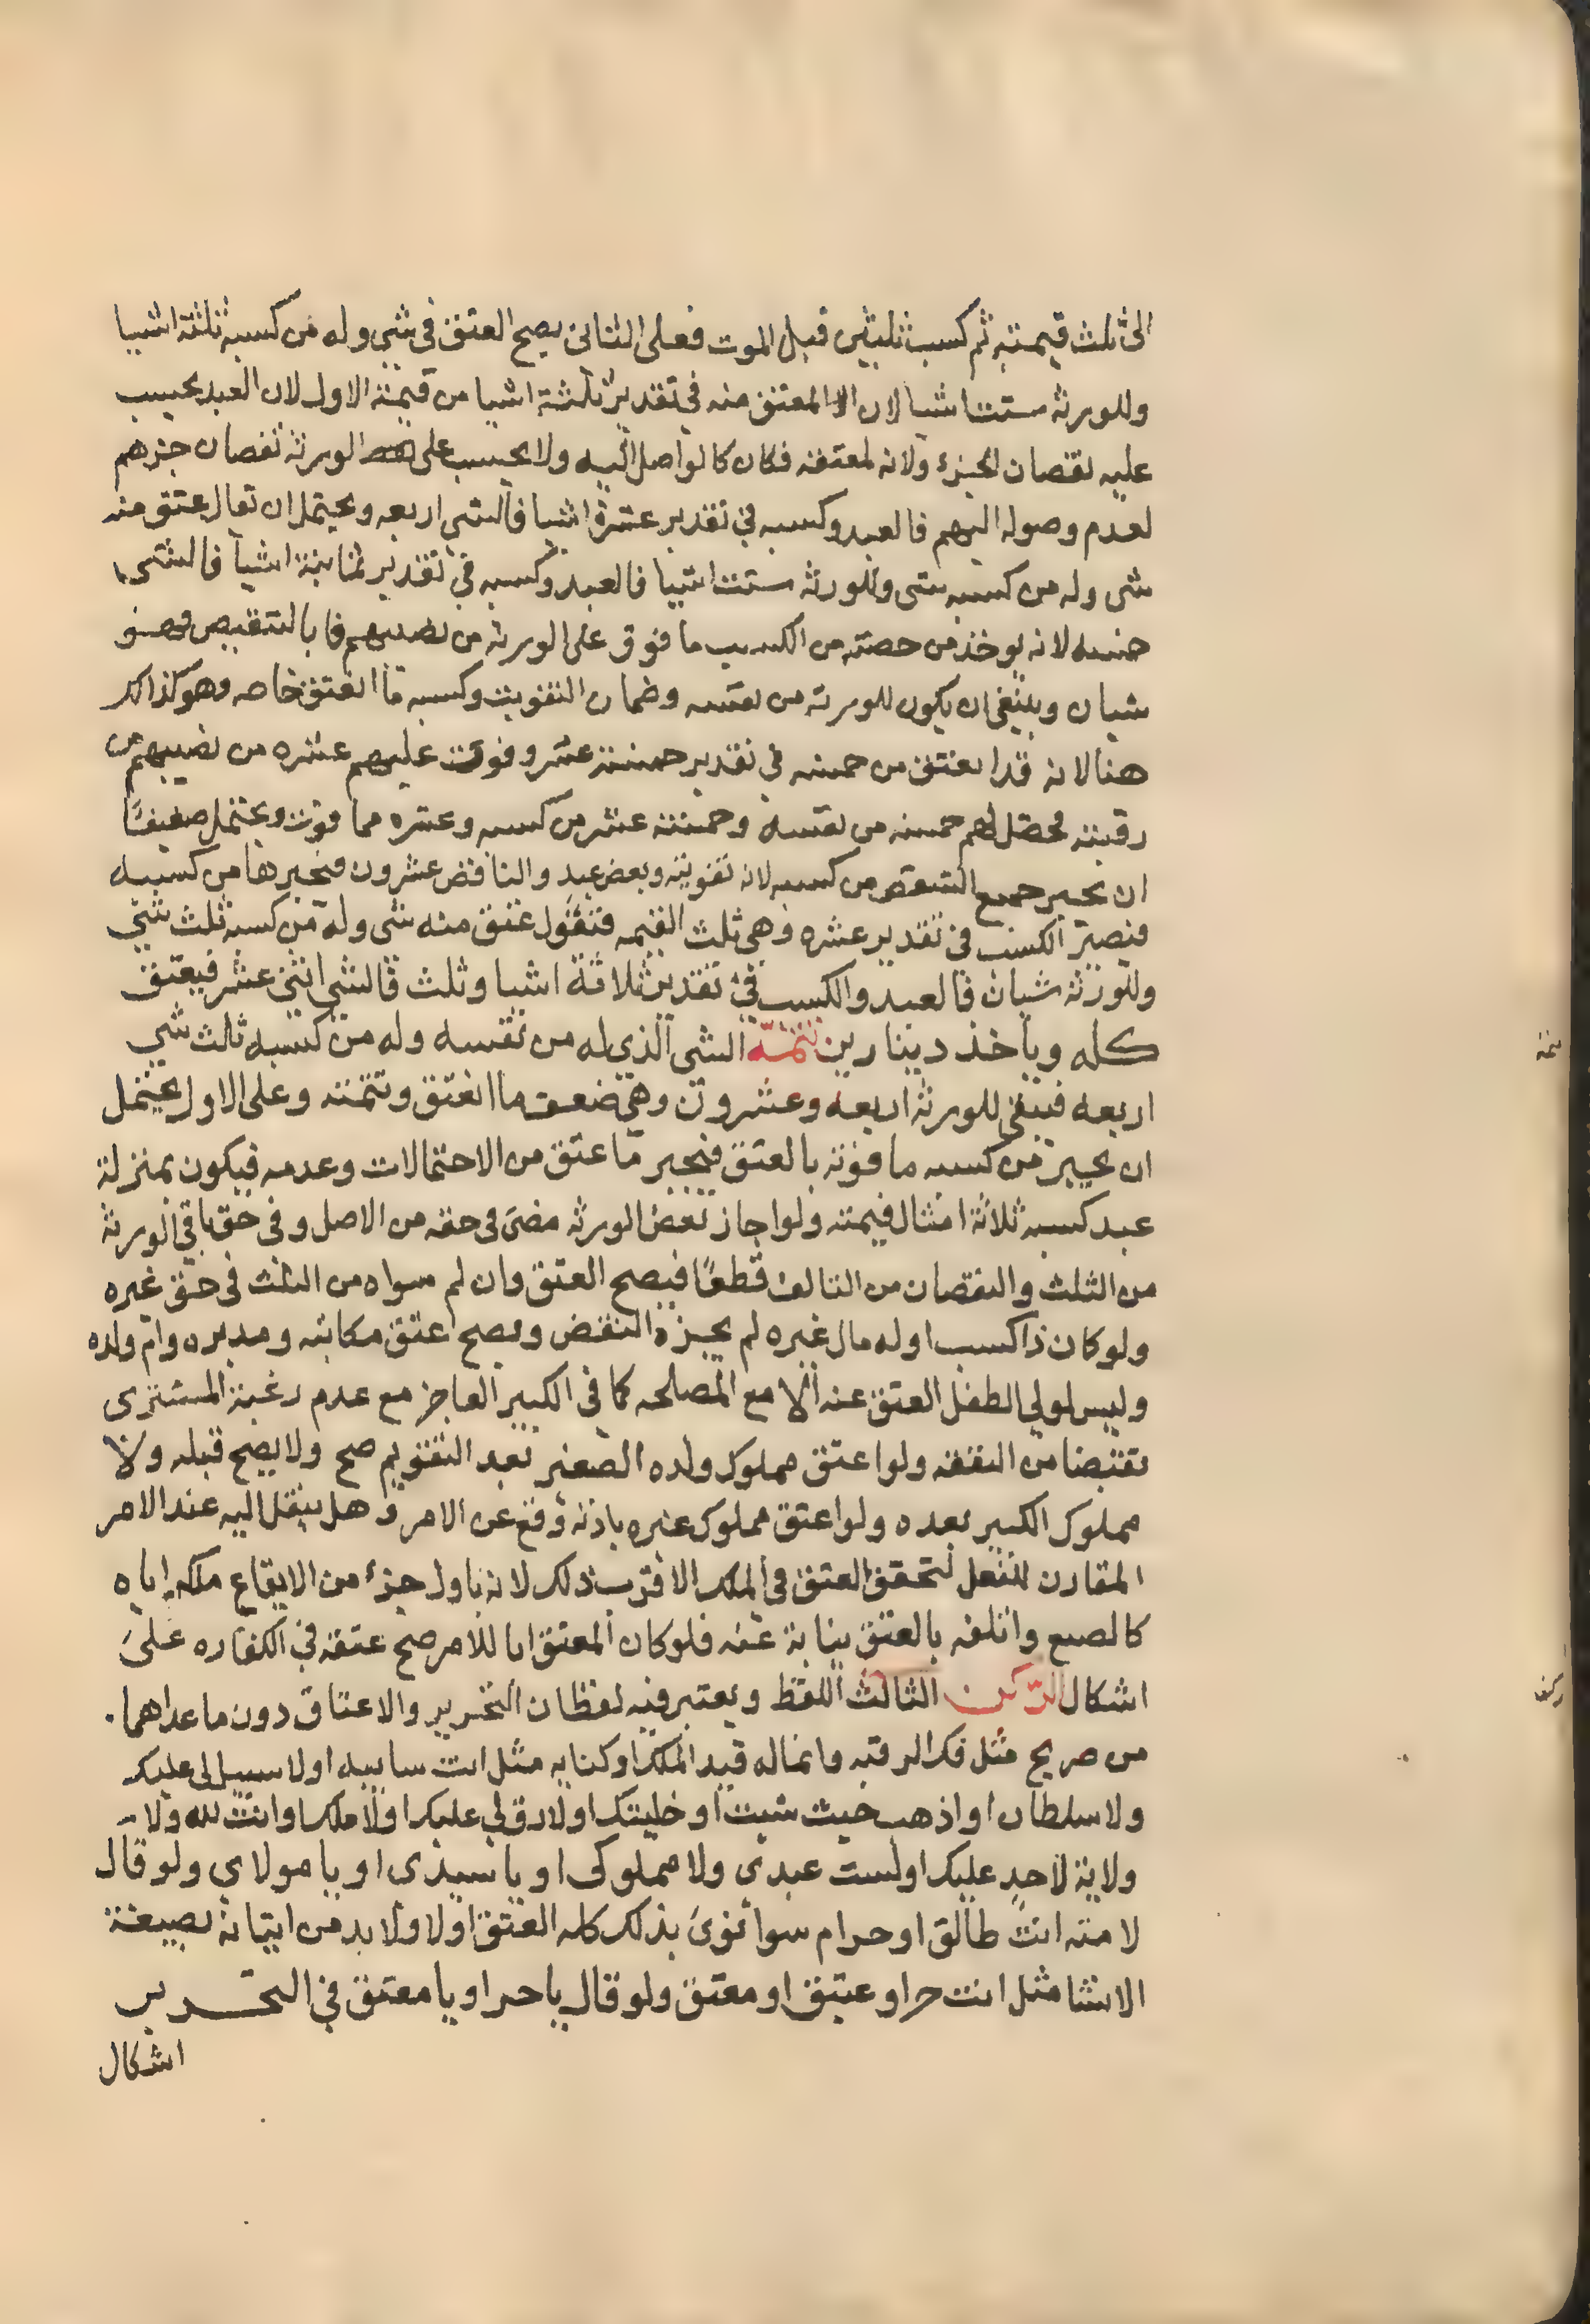 الى ثلث قيمته ثم كسب ثلثين قبل الموت فعلى الثانى يصح العتق فى شى وله من كسبه ثلثة اشيا
وللورثة ستة اشيا لان المعتق منه في تقدير ثلثة اشيا من قيمته الاول لان العبد يحسب
عليه نقصان الجزء ولانه لمعتقه فكان كالواصل اليه ولا يحسب على الورثة نقصان جزءهم
لعدم وصوله اليهم فالعبد وكسبه في تقدير عشرة اشيا فالشى اربعه ويحتمل ان تقال عتق منه
شى وله من كسبه شى وللورثة ستة اشيا فالعبد وكسبه في تقدير ثمانية اشيا فالشى
خمسه لانه يوخذ من حصته من الكسب ما فوق على الورثه من نصيبهم فا بالتنقيص وهو
شيان وينبغى ان يكون للورثه من نفسه وضمان التفويت وكسبه ما انعتق خاصه وهو كذالك
هنا لانه قد انعتق من خمسه في تقدير خمسة عشر وفوت عليهم عشره من نصيبهم من
رقبته فحصل لهم خمسه من نفسه وخمسة عشر من كسبه وعشره مما فوت ويحتمل ضعيفا
ان يجبر جميع النقص من كسبه لانه تفويته وبعض عبد والناقض عشرون فنجبرها من كسبه
فنصير الكسب فى تقدير عشره وهى ثلث القيمه فنقول عتق منه شى وله من كسبه ثلث شي
وللورثة شيان فالعبد والكسب في تقدير ثلاثة اشيا وثلث فالشي اثني عشر فيعتق
كله وياخذ دينارين تتمته الشى الذي له من نفسه وله من كسبه ثالث شي
اربعه فيبقى للورثة اربعه وعشرون وهى ضعف ما انعتق وتتمته وعلى الاول يحتمل
ان يجبر من كسبه ما فوته بالعتق فنجبر ما عتق من الاحتمالات وعدمه فيكون بمنزلة
عبد كسبه ثلاثة امثال قيمته ولو اجاز بعض الورثه مضى فى حقه من الاصل وفى حق باقي الورثة
من الثلث والنقصان من التالف قطعًا فيصح العتق وان لم سواه من الثلث فى حق غيره
ولو كان ذا كسب اوله مال غيره لم يجزه النقض ويصح اعتق مكاتبه ومدبره وام ولده
وليس لولي الطفل العتق عنه الا مع المصلحه كما فى الكبير العاجز مع عدم رغبة المشترى
تقتضا من النفقه ولو اعتق مملوك ولده الصغير بعد التقويم صح ولا يصح قبله ولا
مملوك الكبير بعده ولو اعتق مملوك غيره باذنه وقع عن الامر وهل ينقل اليه عند الامر
المقارن للفعل لتحقق العتق فى الملك الاقرب ذلك لانه باول جزء من الايقاع ملكه اياه
كالصبع واتلفه بالعتق بنابة عنه فلو كان المعتق ابا للامر صح عتقه في الكفاره على
اشكال الركن الثالث اللفظ ويعتبر فيه لفظان التحرير والاعتاق دون ماعداهما
من صريح مثل فك الرقبه وازاله قيد الملك اوكنايه مثل انت سايبه او لا سبيل لى عليك
ولا سلطان او اذهب حيث شيت او خليتك او لا رق لي عليك او لا ملك او انت لله ولا
ولاية لاحد عليك او لست عبدى ولا مملوكى او يا سيدى او يا مولاى ولو قال
لامته انت طالق او حرام سوا نوى بذلك كله العتق اولا ولا بد من اتيانه بصيغة
الانشا مثل انت حر او عتيق او معتق ولو قال ياحر او يا معتق في التحرير
اشكال